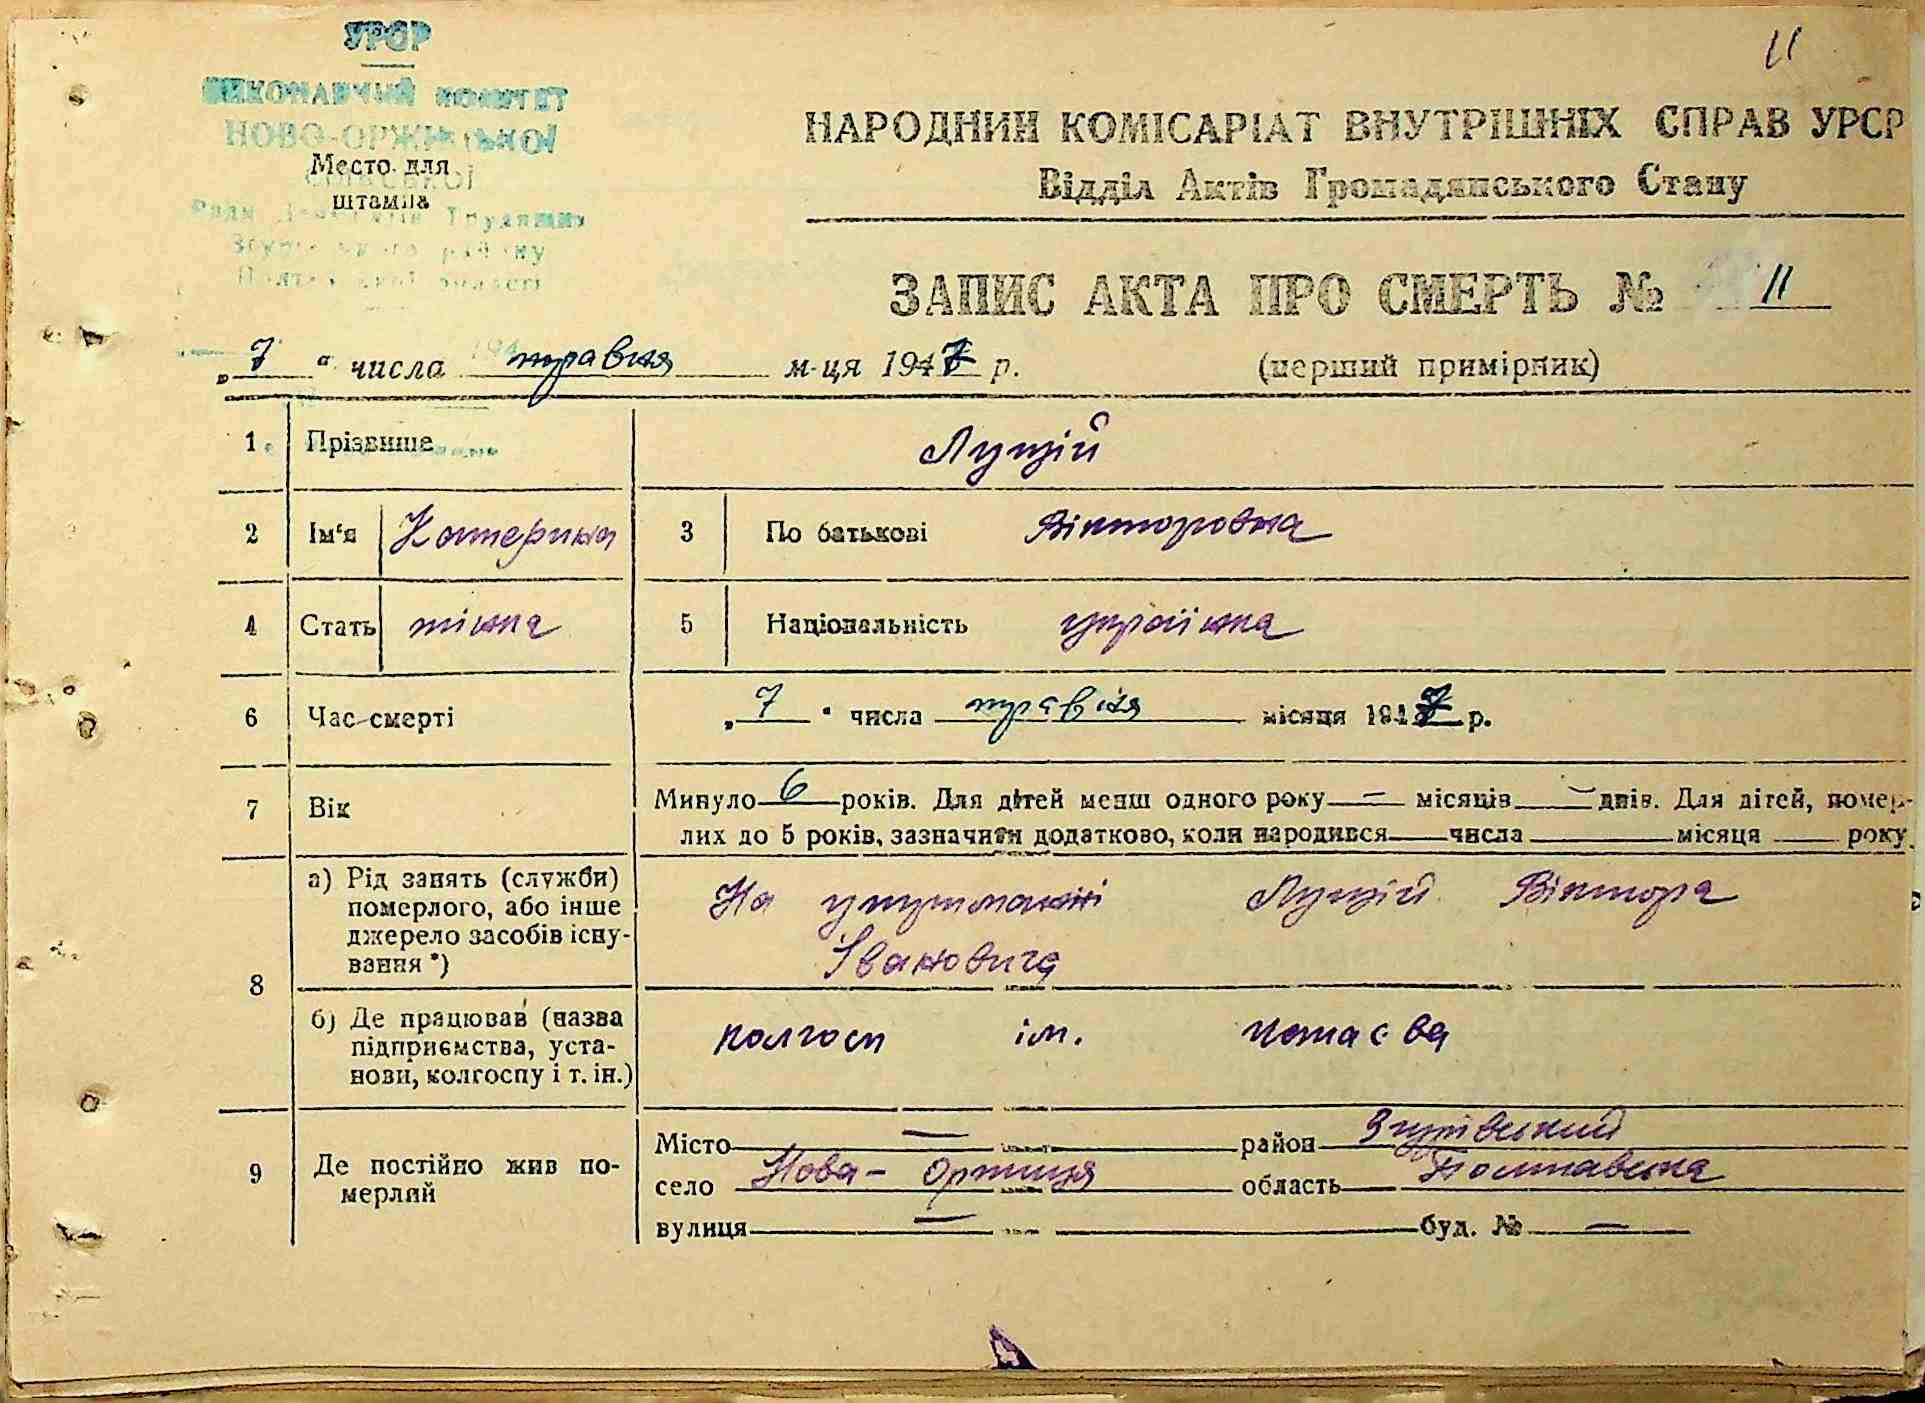 11
УРСР
ВИКОНАВЧИЙ КОМІТЕТ
НОВО-ОРЖИЦЬКОЇ
СІЛЬСЬКОЇ
Ради Депутатів Трудящих
Згурівського району
Полтавської області
Место для
штампа
НАРОДНИЙ КОМІСАРІАТ ВНУТРІШНІХ СПРАВ УРСР
Відділ Актів Громадянського Стану
ЗАПИС АКТА ПРО СМЕРТЬ № 11
„7“ числа травня м-ця 1947 р. (перший примірник)
1. Прізвище Луцій
2 Ім'я Катерина 3 По батькові Вікторовна
4 Стать жінка 5 Національність українка
6 Час смерті „7“ числа травня місяця 1947 р.
7 Вік Минуло 6 років. Для дітей менш одного року — місяців — днів. Для дітей, помер-
лих до 5 років, зазначити додатково, коли народився числа місяця року
8 а) Рід занять (служби) померлого, або інше джерело засобів існу-вання *) На утриманні Луцій Віктора
Івановича
б) Де працював (назва підприємства, уста-нови, колгоспу і т. ін.) колгосп ім.
9 Де постійно жив по-мерлий Місто — район Згурівський
село Нова-Оржиця область Полтавська
вулиця — буд. № —